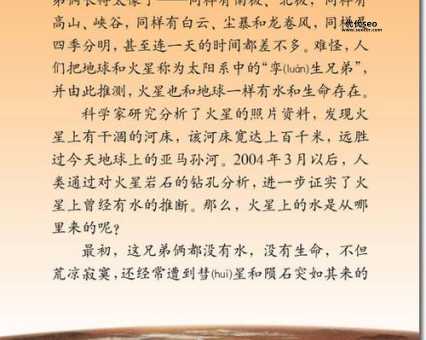 弟俩长得太像了——同样有南极、北极，同样有
高山、峡谷，同样有白云、尘暴和龙卷风，同样是
四季分明，甚至连一天的时间都差不多。难怪，人
们把地球和火星称为太阳系中的“孪(luán)生兄弟”，
并由此推测，火星也和地球一样有水和生命存在。
科学家研究分析了火星的照片资料，发现火
星上有干涸的河床，该河床宽达上百千米，远胜
过今天地球上的亚马孙河。2004年3月以后，人
类通过对火星岩石的钻孔分析，进一步证实了火
星上曾经有水的推断。那么，火星上的水是从哪
里来的呢？
最初，这兄弟俩都没有水，没有生命，不但
荒凉寂寞，还经常遭到彗(huì)星和陨石突如其来的